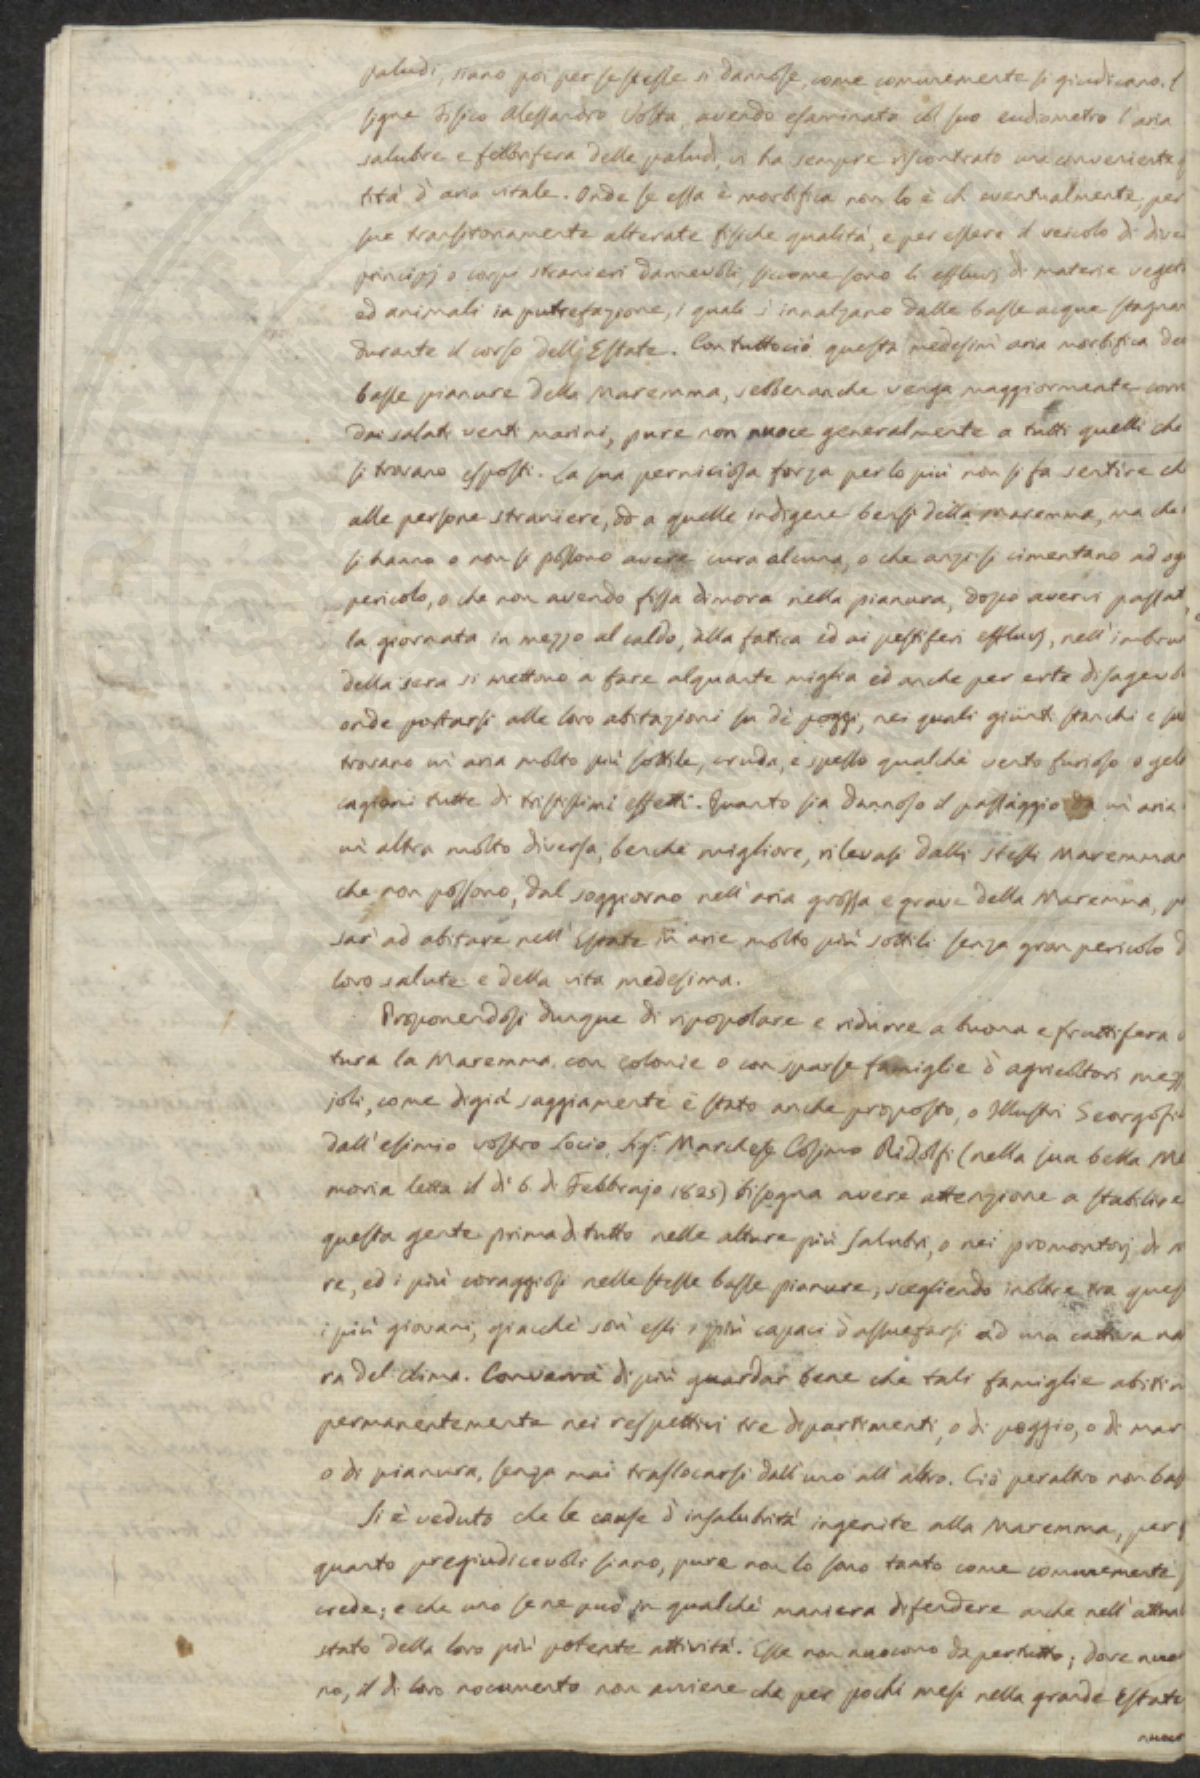 paludi, siano poi per se stesse sì dannose, come comunemente si giudicano. L'
signe Fisico Alessandro Volta, avendo esaminato col suo eudiometro l'aria
salubre e febbrifera delle paludi, vi ha sempre riscontrato una conveniente
tità d'aria vitale. Onde se essa è morbifica non lo è ch' eventualmente, per
sue transitoriamente alterate fisiche qualità, e per essere il veicolo di dive
principj o corpi stranieri dannevoli, siccome sono li effluvj di materie veget
ed animali in putrefazione, i quali s'innalzano dalle basse acque stagnan
durante il corso dell'Estate. Contuttociò questa medesim' aria morbifica de
basse pianure della Maremma, sebbenanche venga maggiormente corr
dai salati venti marini, pure non nuoce generalmente a tutti quelli che
si trovano esposti. La sua perniciosa forza per lo più non si fa sentire ch
alle persone straniere, od a quelle indigene bensì della maremma, ma che
si hanno o non si possono avere cura alcuna, o che anzi si cimentano ad og
pericolo, o che non avendo fissa dimora nella pianura, dopo avervi passat
la giornata in mezzo al caldo, alla fatica ed ai pestiferi effluvj, nell'imbrun
della sera si mettono a fare alquante miglia ed anche per erte disagevoli
onde portarsi alle loro abitazioni su de' poggi, nei quali giunti stanchi e su
trovano un'aria molto più sottile, cruda, e spesso qualche vento furioso o gel
cagioni tutte di tristissimi effetti. Quanto sia dannoso il passaggio da un'aria
un'altra molto diversa, benchè migliore, rilevasi dalli stessi Maremman
che non possono, dal soggiorno nell'aria grossa e grave della Maremma, p
sar' ad abitare nell'Estate in arie molto più sottili senza gran pericolo d
loro salute e della vita medesima.
Proponendosi dunque di ripopolare e ridurre a buona e fruttifera c
tura la Maremma con colonie o con sparse famiglie d'agricoltori mezz
joli, come digià saggiamente è stato anche proposto, o Illustri Georgofi
dall'esimio vostro Socio, Sig.r Marchese Cosimo Ridolfi (nella sua bella Me
moria letta il dì 6. di Febbrajo 1825) bisogna avere attenzione a stabilire
questa gente prima di tutto nelle alture più salubri, o nei promontorj di m
re, ed i più coraggiosi nelle stesse basse pianure, scegliendo inoltre tra ques
i più giovani, giacchè son essi i più capaci d'assuefarsi ad una cattiva na
ra del clima. Converrà di più guardar bene che tali famiglie abitin
permanentemente nei respettivi tre dipartimenti, o di poggio, o di mar
o di pianura, senza mai traslocarsi dall'uno all'altro. Ciò peraltro non bas
Si è veduto che le cause d'insalubrità ingenite alla Maremma, per
quanto pregiudicevoli siano, pure non lo sono tanto come comunemente
crede; e che uno se ne può in qualche maniera difendere anche nell'attua
stato della loro più potente attività. Esse non nuocono da pertutto; dove nuo
no, il di loro nocumento non avviene che per pochi mesi nella grande Estate
nuoco